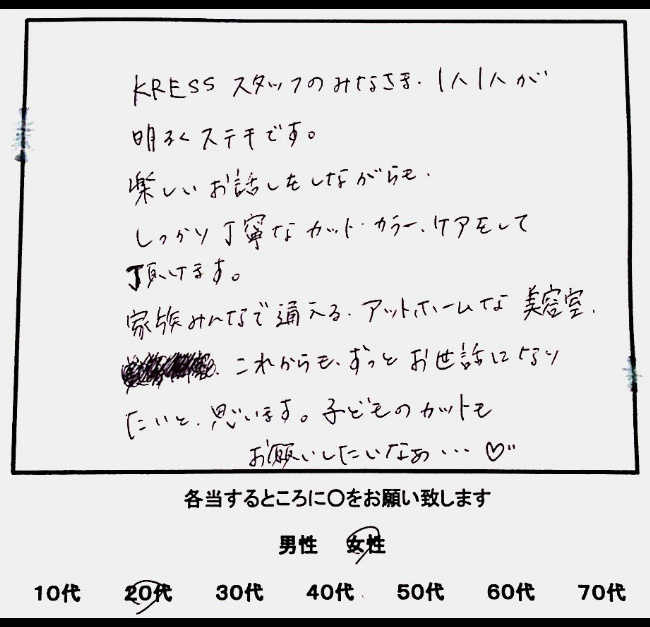 KRESS スタッフのみなさま、1人1人が
明るくステキです。
楽しいお話しをしながらも、
しっかり丁寧なカット・カラー、ケアをして
頂けます。
家族みんなで通える、アットホームな美容室、
これからも、ずっとお世話になり
たいと、思います。子どものカットも
お願いしたいなぁ…♡
各当するところに〇をお願い致します
男性 女性
10代 20代 30代 40代 50代 60代 70代